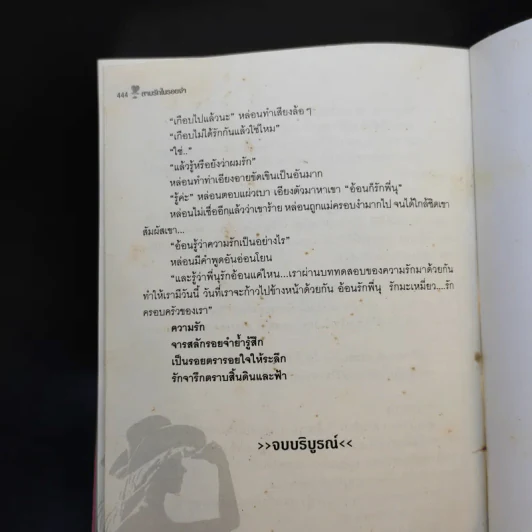 444 ตามรักในรอยฟ้า
“เกือบไปแล้วนะ” หล่อนทำเสียงล้อ ๆ
“เกือบไม่ได้รักกันแล้วใช่ไหม”
“ใช่..”
“แล้วรู้หรือยังว่าผมรัก”
หล่อนทำท่าเอียงอายขัดเขินเป็นอันมาก
“รู้ค่ะ” หล่อนตอบแผ่วเบา เอียงตัวมาหาเขา “อ้อนก็รักพี่นุ”
หล่อนไม่เชื่ออีกแล้วว่าเขาร้าย หล่อนถูกแม่ครอบงำมากไป จนได้ใกล้ชิดเขา
สัมผัสเขา...
“อ้อนรู้ว่าความรักเป็นอย่างไร”
หล่อนมีคำพูดอันอ่อนโยน
“และรู้ว่าพี่นุรักอ้อนแค่ไหน...เราผ่านบททดสอบของความรักมาด้วยกัน
ทำให้เรามีวันนี้ วันที่เราจะก้าวไปข้างหน้าด้วยกัน อ้อนรักพี่นุ รักมะเหมี่ยว...รัก
ครอบครัวของเรา”
ความรัก
จารสลักรอยจำย้ำรู้สึก
เป็นรอยตรารอยใจให้ระลึก
รักจารึกตราบสิ้นดินและฟ้า
>>จบบริบูรณ์<<